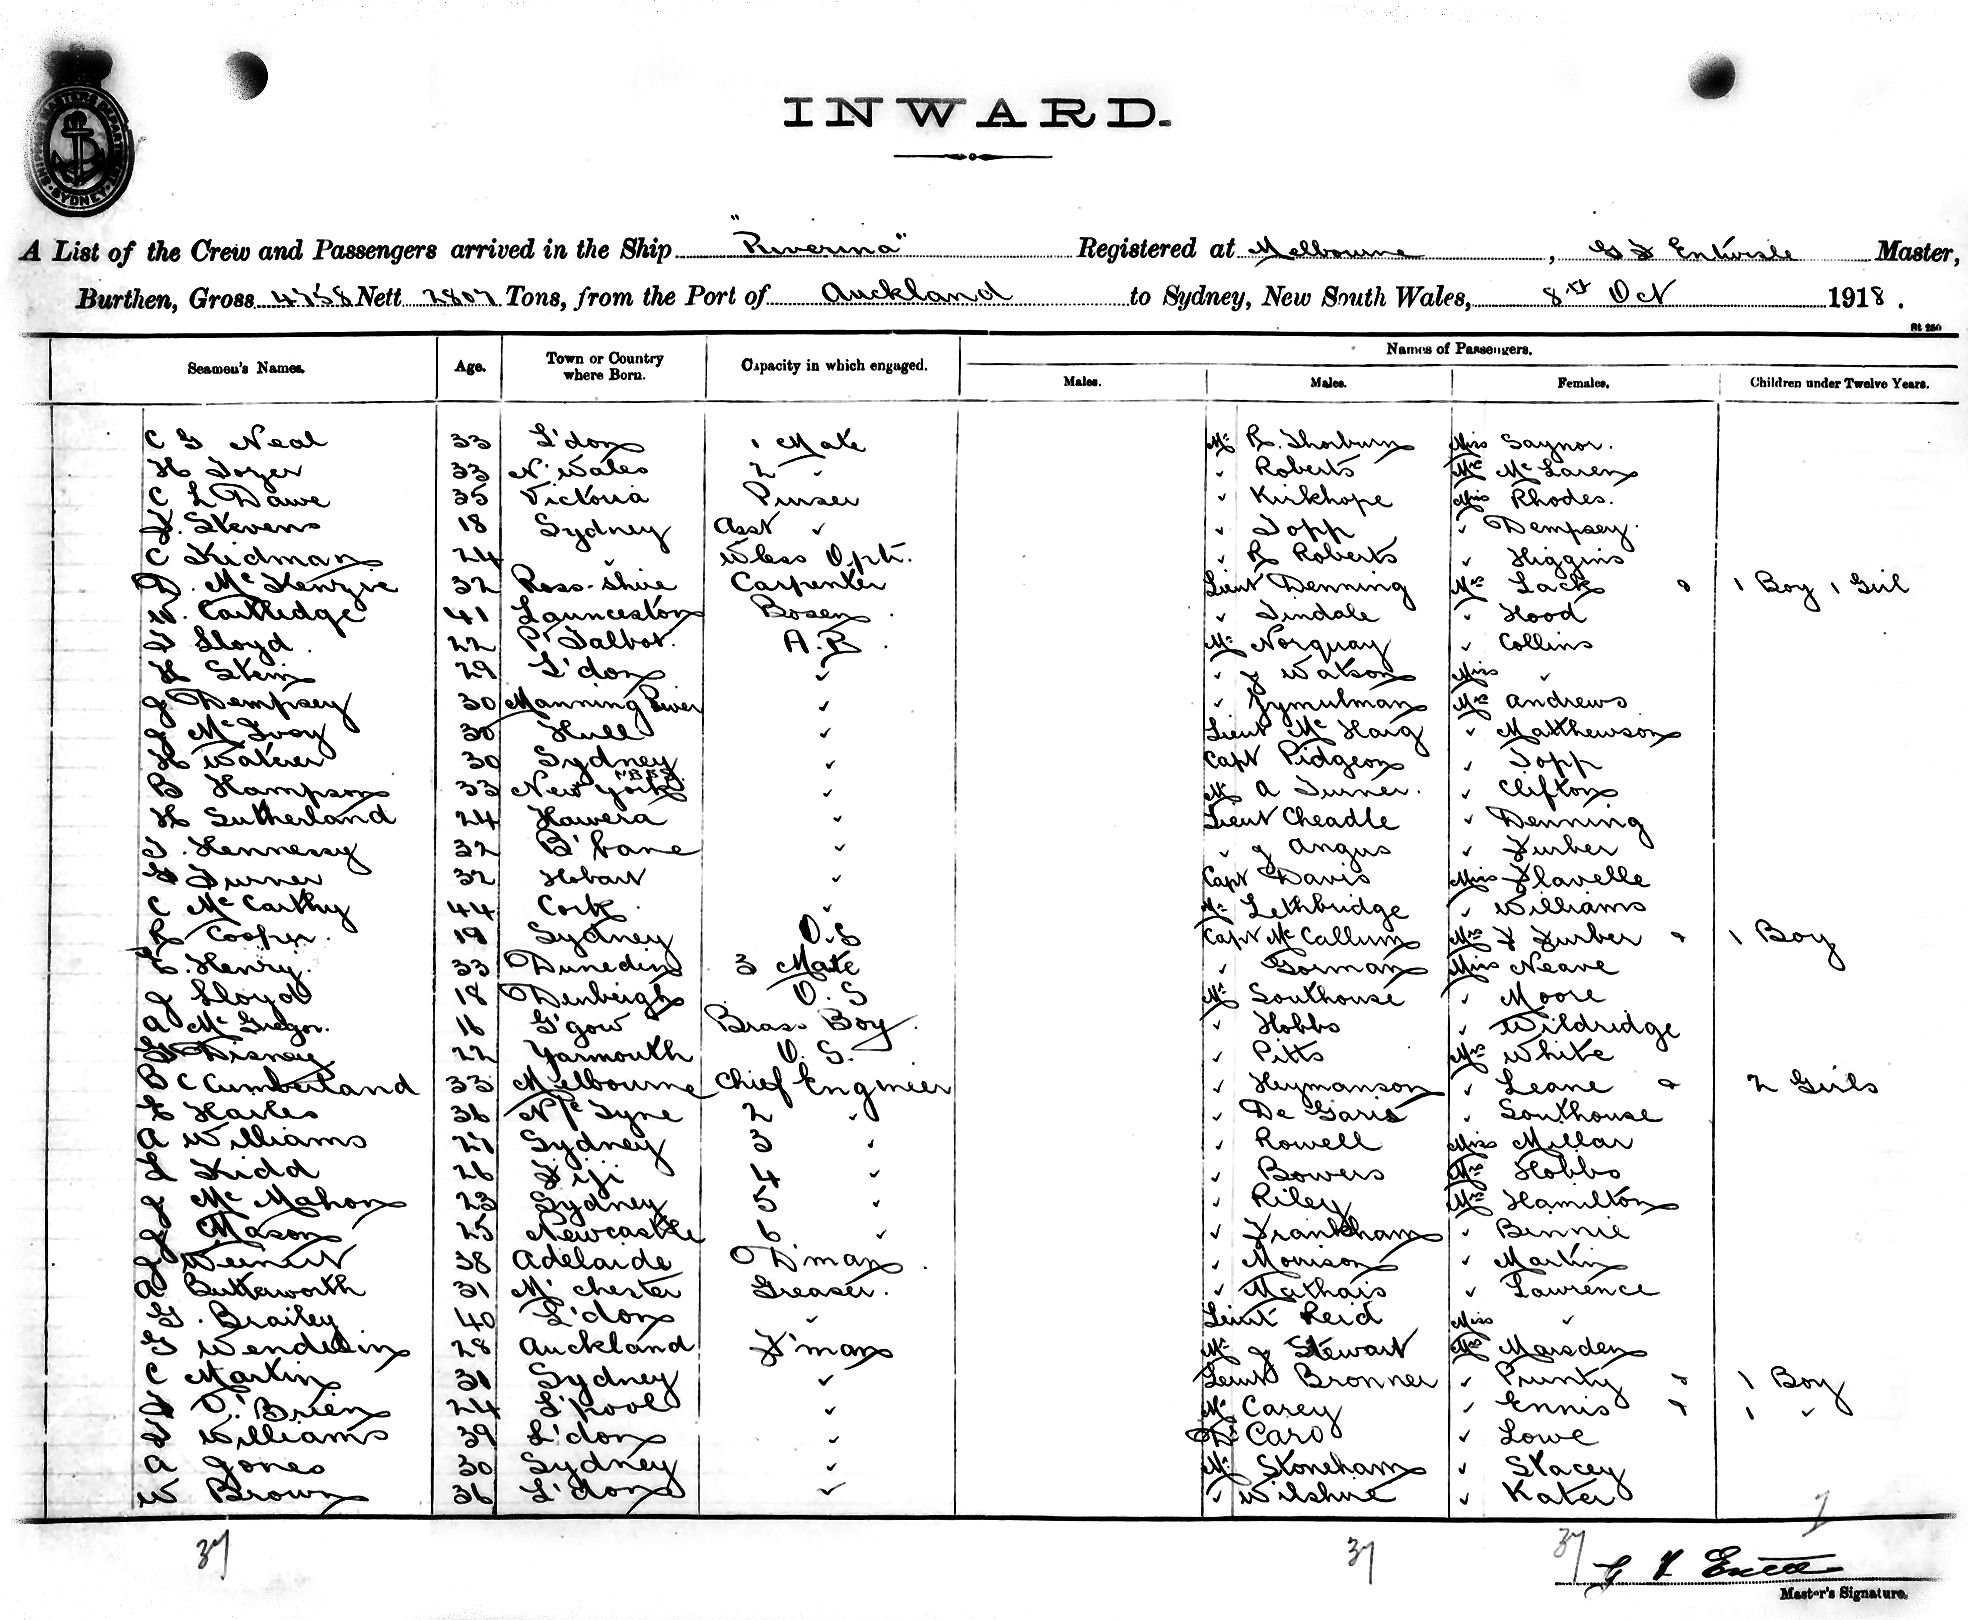 SHIPPING MASTERS DEPARTMENT SYDNEY
INWARD.
A List of the Crew and Passengers arrived in the Ship "Riverina" Registered at Melbourne, G F Entwisle Master,
Burthen, Gross 4758 Nett 2807 Tons, from the Port of Auckland to Sydney, New South Wales, 8th Oct 1918.
St 260
Seamen's Names. Age. Town or Country where Born. Capacity in which engaged. Names of Passengers.
Males. Males. Females. Children under Twelve Years.
C G Neal 33 L'don 1 Mate Mr R. Thorburn Miss Saynor.
H Tozer 33 N. Wales 2 " " Roberts Mrs McLaren
C L Dawe 35 Victoria Purser " Kirkhope Miss Rhodes.
F. Stevens 18 Sydney Asst " " Topp " Dempsey.
C Kidman 24 " W'less Opt. " R Roberts " Higgins
D. McKenzie 32 Ross-shire Carpenter Lieut Denning Mrs Lack & 1 Boy 1 Girl
W. Cartledge 41 Launceston Bosen " Tindale " Hood
T Lloyd. 22 P' Talbot. A.B. Mr Norquay " Collins
H Stein 29 L'don " " J Watson Miss "
J Dempsey 30 Manning River " " Jymulman Mrs Andrews
J McIvoy 30 Hull " Lieut McHaig " Matthewson
H Waterer 30 Sydney " Capt Pidgeon " Topp
B Hampson 33 New York " Mr A Turner. " Clifton
H Sutherland 24 Hawera " Lieut Cheadle " Denning
T. Hennessy 32 B'bane " " J Angus " Furber
G Turner 32 Hobart " Capt Davis Miss Flavelle
C McCarthy 44 Cork " Mr Lethbridge " Williams
R Cooper. 19 Sydney O.S Capt McCallum Mrs F Furber & 1 Boy
E. Henry. 33 Dunedin 3 Mate " Gorman Miss Neave
J Lloyd 18 Denbeigh O.S Mr Southouse " Moore
A McGregor. 16 G'gow Brass Boy. " Hobbs " Wildridge
G Disney 22 Yarmouth O.S. " Pitts Mrs White
B C Cumberland 33 Melbourne Chief Engineer " Heymanson " Leane & 2 Girls
E Harles 36 N/c Tyne 2 " " De Garis " Southouse
A Williams 27 Sydney 3 " " Rowell Miss Millar
L Kidd 26 Fiji 4 " " Bowers Mrs Hobbs
J McMahon 23 Sydney 5 " " Riley Mrs Hamilton
J Mason 25 Newcastle 6 " " Frankham " Binnie
J 38 Adelaide D'man. " Morrison " Martin
A Butterworth 31 M'chester Greaser. " Mathais " Lawrence
G. Brailey 40 L'don " Lieut Reid Miss "
G Wendelin 28 Auckland F'man Mr J Stewart Mrs Marsden
C Martin 31 Sydney " Lieut Bronner " Prunty & 1 Boy
F O'Brien 24 L'pool " Mr Carey " Ennis & 1 "
T Williams 39 L'don " Dr Caro " Lowe
A Jones 30 Sydney " Mr Stoneham " Stacey
W Brown 36 L'don " " Wilshire " Kater
7
37 37 37
G F Entwisle
Master's Signature.